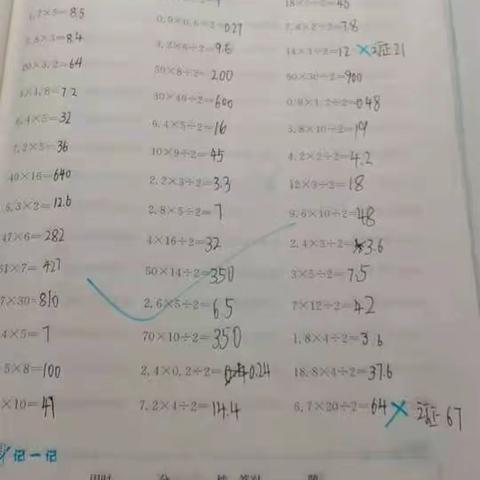 1.7×5=8.5
2.8×3=8.4
20×3.2=64
4×1.8=7.2
6.4×5=32
7.2×5=36
40×16=640
6.3×2=12.6
47×6=282
61×7=427
7×30=810
4×5=7
5×8=100
×10=47
0.9×0.6÷2=0.27
3.2×6÷2=9.6
50×8÷2=200
30×40÷2=600
6.4×5÷2=16
10×9÷2=45
2.2×3÷2=3.3
2.8×5÷2=7
4×16÷2=32
50×14÷2=350
2.6×5÷2=6.5
70×10÷2=350
2.4×0.2÷2=0.24
7.2×4÷2=14.4
7.8
14×3÷2=12 × 改正 21
60×30÷2=900
0.8×1.2÷2=0.48
3.8×10÷2=19
4.2×2÷2=4.2
12×3÷2=18
9.6×10÷2=48
2.4×3÷2=3.6
3×5÷2=7.5
7×12÷2=42
1.8×4÷2=3.6
18.8×4÷2=37.6
6.7×20÷2=64 × 改正 67
记一记